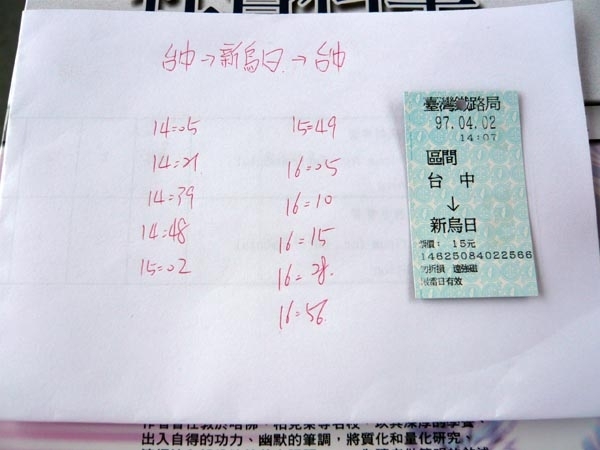 台中→新烏日→台中
14:05
14:21
14:39
14:48
15:02
15:49
16:05
16:10
16:15
16:28
16:56
臺灣鐵路局
97.04.02
14:07
區間
台 中
↓
新烏日
票價: 15元
14625084022566
勿折損 遠強磁
限當日有效
出入自得的功力、幽默的筆調,將質化和量化研究、